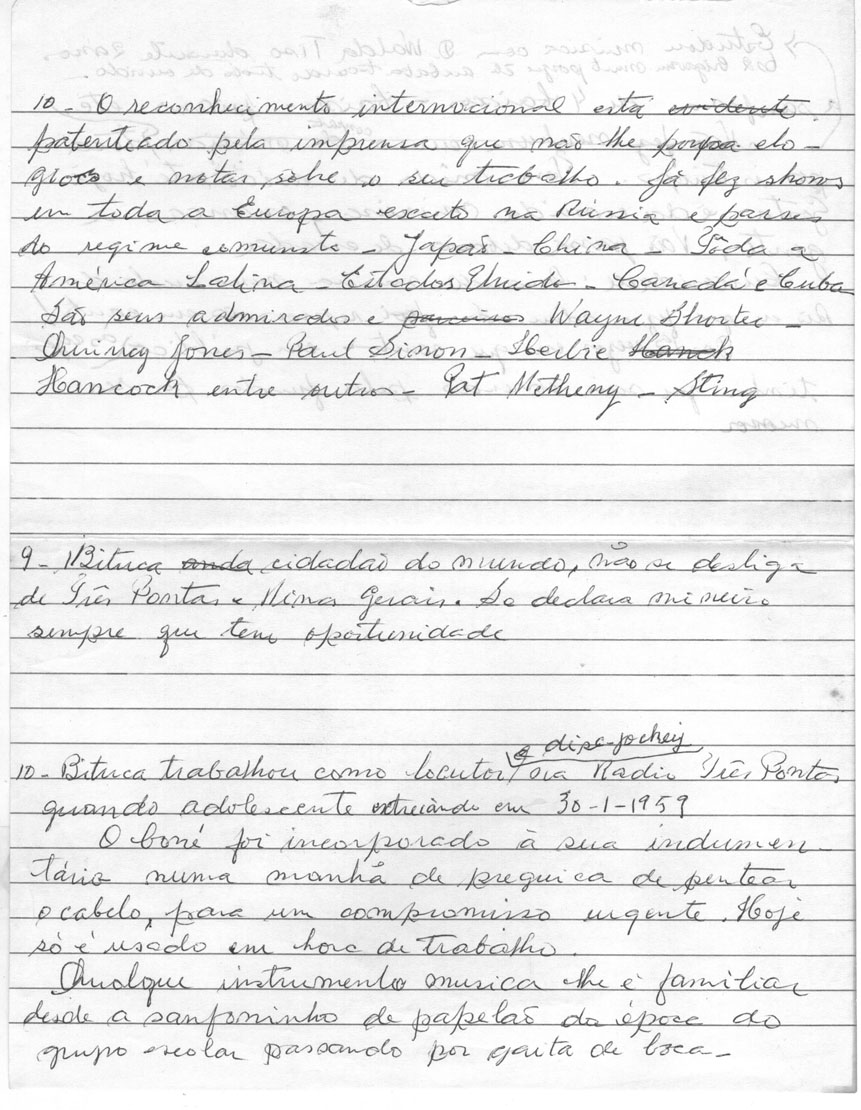 10 - O reconhecimento internacional está evidente
patenteado pela imprensa que não lhe poupa elo-
gios e notas sobre o seu trabalho. Já fez shows
em toda a Europa exceto na Rússia e paises
do regime comunista - Japão - China - Tôda a
América Latina - Estados Unido - Canadá e Cuba
São seus admirados e parceiros Wayne Shorter -
Quincy Jones - Paul Simon - Herbie Hanck
Hancock entre outros - Pat Metheny - Sting
9 - Bituca anda cidadão do mundo, não se desliga
de Três Pontas e Minas Gerais. Se declara mineiro
sempre que tem oportunidade
e disc-jochey
10 - Bituca trabalhou como locutor na Radio Três Pontas
quando adolescente estreiando em 30-1-1959
O boné foi incorporado à sua indumen-
tária numa manhã de preguica de pentear
o cabelo, para um compromisso urgente. Hoje
só é usado em hora de trabalho.
Qualque instrumento musica lhe é familiar
desde a sanfoninha de papelão da época do
grupo escolar passando por gaita de boca -